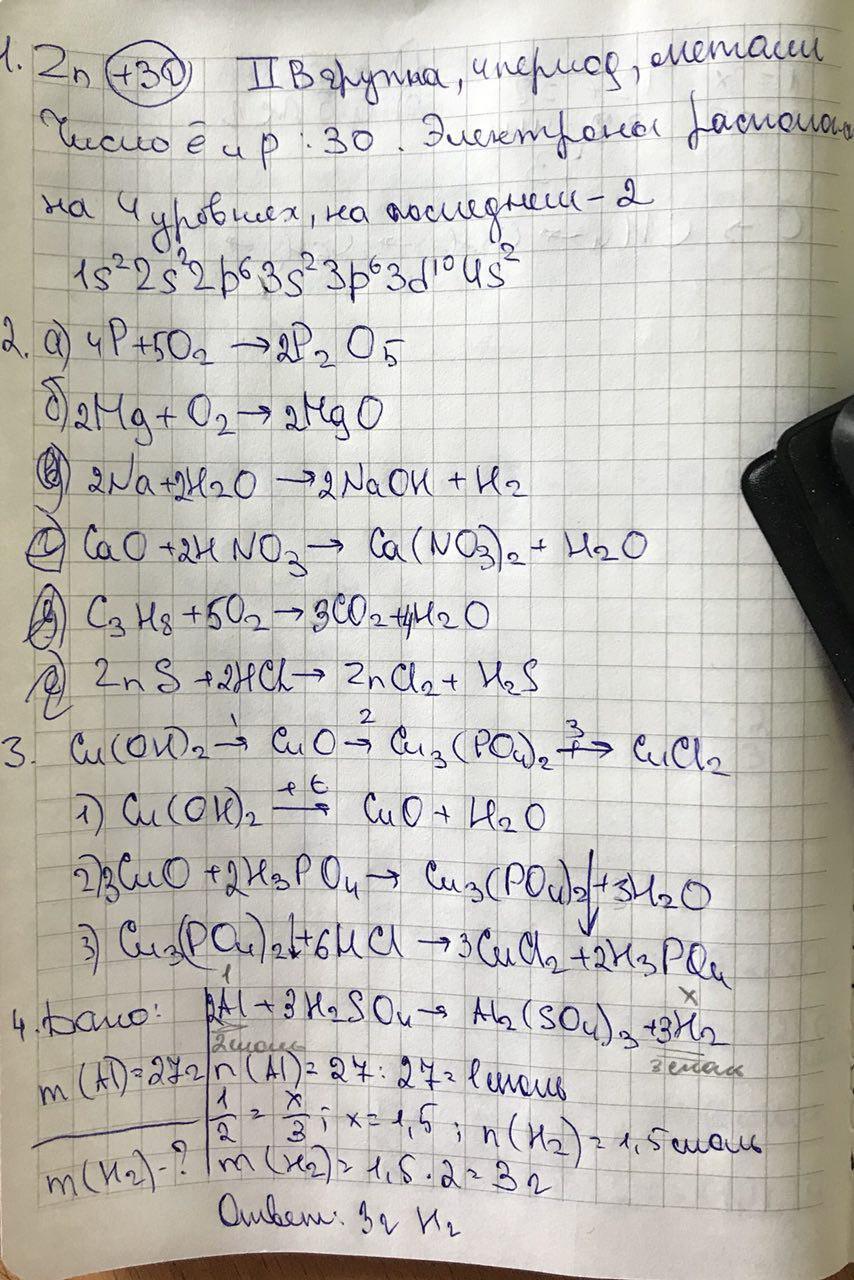 1. Zn +30 II B группа, 4 период, металл
Число ē и p : 30. Электроны располож
на 4 уровнях, на последнем - 2
1s² 2s² 2p⁶ 3s² 3p⁶ 3d¹⁰ 4s²
2. а) 4P + 5O₂ → 2P₂O₅
б) 2Mg + O₂ → 2MgO
в) 2Na + 2H₂O → 2NaOH + H₂
г) CaO + 2HNO₃ → Ca(NO₃)₂ + H₂O
д) C₃H₈ + 5O₂ → 3CO₂ + 4H₂O
е) ZnS + 2HCl → ZnCl₂ + H₂S
3. Cu(OH)₂ →¹ CuO →² Cu₃(PO₄)₂ →³ CuCl₂
1) Cu(OH)₂ →⁺ᵗ CuO + H₂O
2) 3CuO + 2H₃PO₄ → Cu₃(PO₄)₂↓ + 3H₂O
3) Cu₃(PO₄)₂↓ + 6HCl → 3CuCl₂ + 2H₃PO₄
1 x
4. Дано: 2Al + 3H₂SO₄ → Al₂(SO₄)₃ + 3H₂
2моль 3моль
m(Al) = 27г n(Al) = 27 : 27 = 1моль
1/2 = x/3 ; x = 1,5 ; n(H₂) = 1,5моль
m(H₂) - ? m(H₂) = 1,5 · 2 = 3г
Ответ: 3г H₂